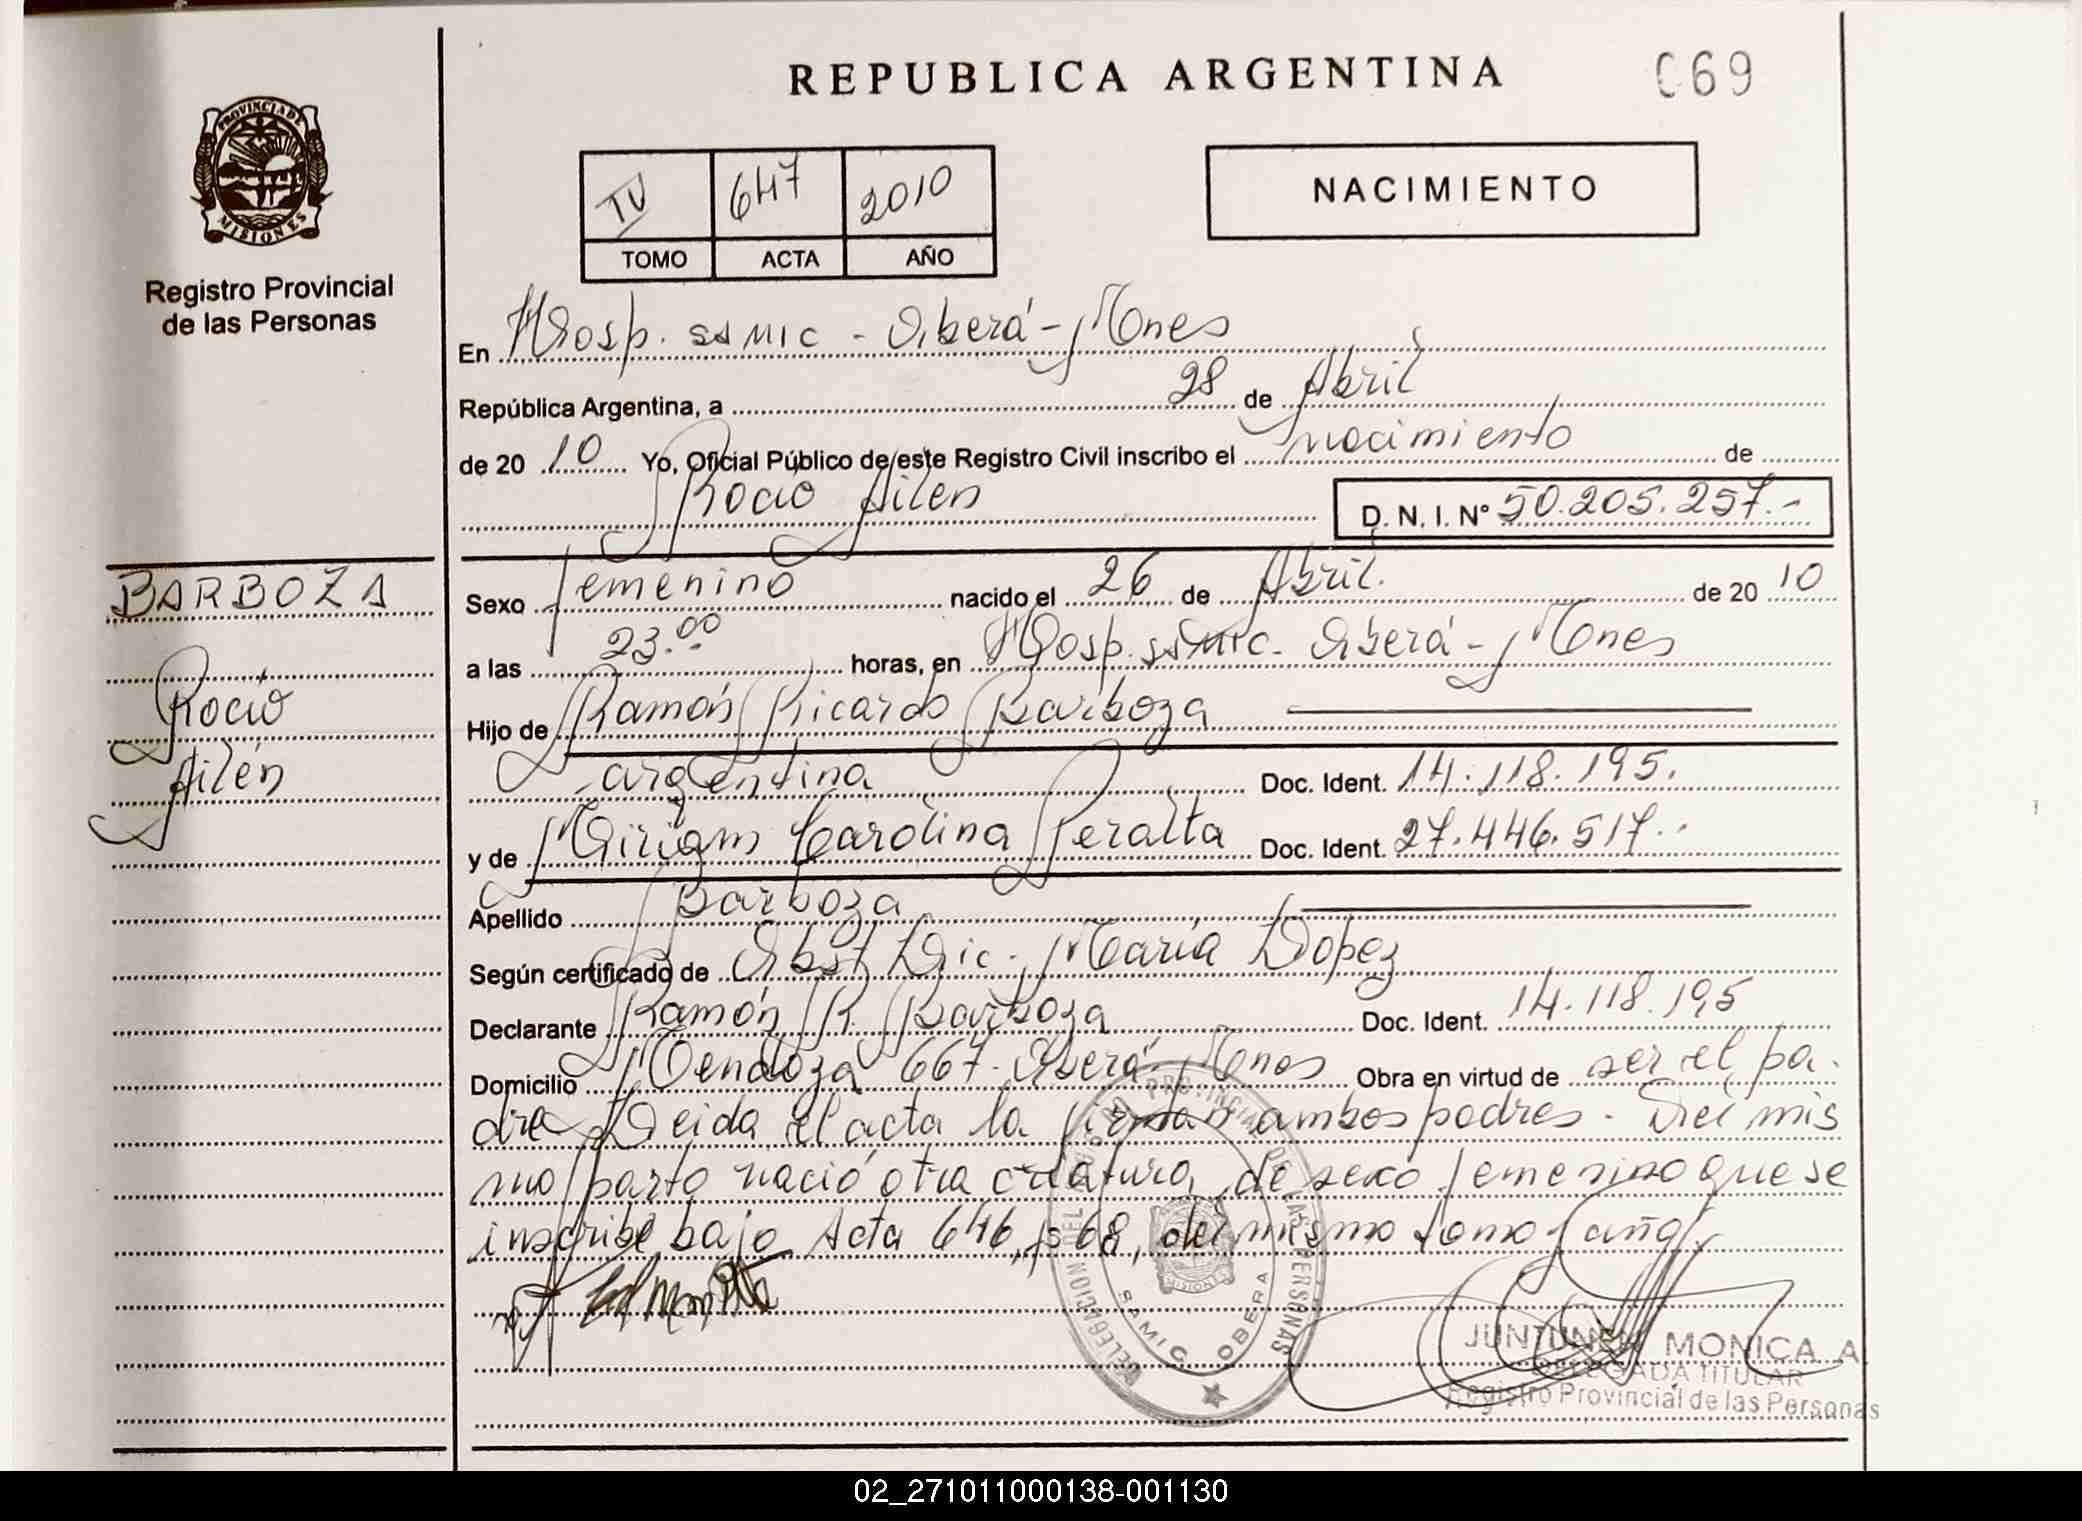 REPUBLICA ARGENTINA
069
PROVINCIA DE
MISIONES
Registro Provincial
de las Personas
TV 647 2010
TOMO ACTA AÑO
NACIMIENTO
En Hosp. SSMIC - Oberá - Mones
República Argentina, a 28 de Abril
de 20 10 Yo, Oficial Público de este Registro Civil inscribo el nacimiento de
Rocío Ailén
D. N. I. N° 50.205.257.-
BARBOZA
Rocío
Ailén
Sexo femenino nacido el 26 de Abril. de 20 10
a las 23.00 horas, en Hosp. SSMIC - Oberá - Mones
Hijo de Ramón Ricardo Barboza
argentina Doc. Ident. 14.118.195.
y de Miriam Carolina Peralta Doc. Ident. 27.446.517.-
Apellido Barboza
Según certificado de Obst. Lic. María Lopez
Declarante Ramón R. Barboza Doc. Ident. 14.118.195
Domicilio Mendoza 667 - Oberá - Mones Obra en virtud de ser el pa-
dre Leida el acta la firman ambos padres. Del mis
mo parto nació otra criatura de sexo femenino que se
inscribe bajo Acta 646, fº 68, del mismo tomo y año
DELEGACION DEL REGISTRO PROVINCIAL DE LAS PERSONAS
MISIONES
SAMIC OBERA
JUNTUNEN MONICA A
DELEGADA TITULAR
Registro Provincial de las Personas
02_271011000138-001130